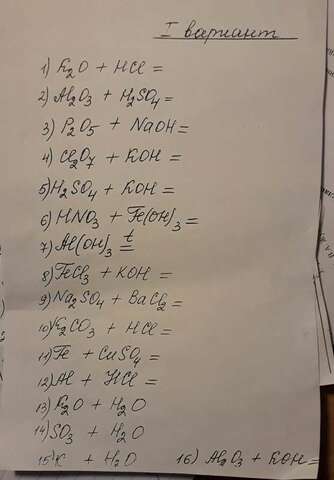 I вариант
1) K₂O + HCl =
2) Al₂O₃ + H₂SO₄ =
3) P₂O₅ + NaOH =
4) Cl₂O₇ + KOH =
5) H₂SO₄ + KOH =
6) HNO₃ + Fe(OH)₃ =
7) Al(OH)₃ t =
8) FeCl₃ + KOH =
9) Na₂SO₄ + BaCl₂ =
10) K₂CO₃ + HCl =
11) Fe + CuSO₄ =
12) Al + HCl =
13) K₂O + H₂O
14) SO₃ + H₂O
15) K + H₂O 16) Al₂O₃ + KOH =